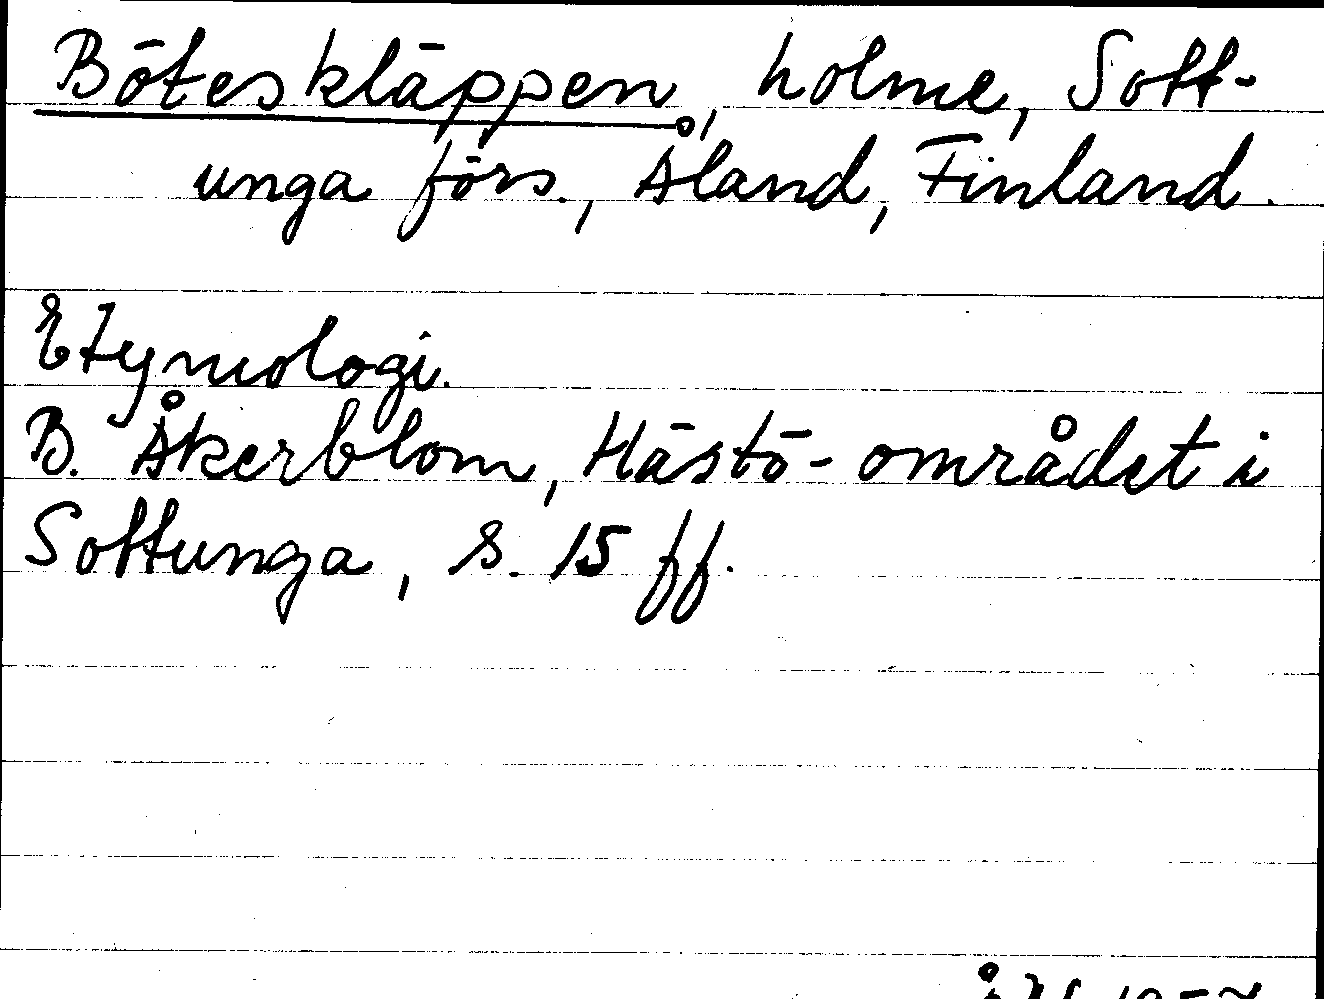 Böteskläppen, holme, Sott-
unga förs., Åland, Finland.
Etymologi.
B. Åkerblom, Hästö-området i
Sottunga, s. 15 ff.